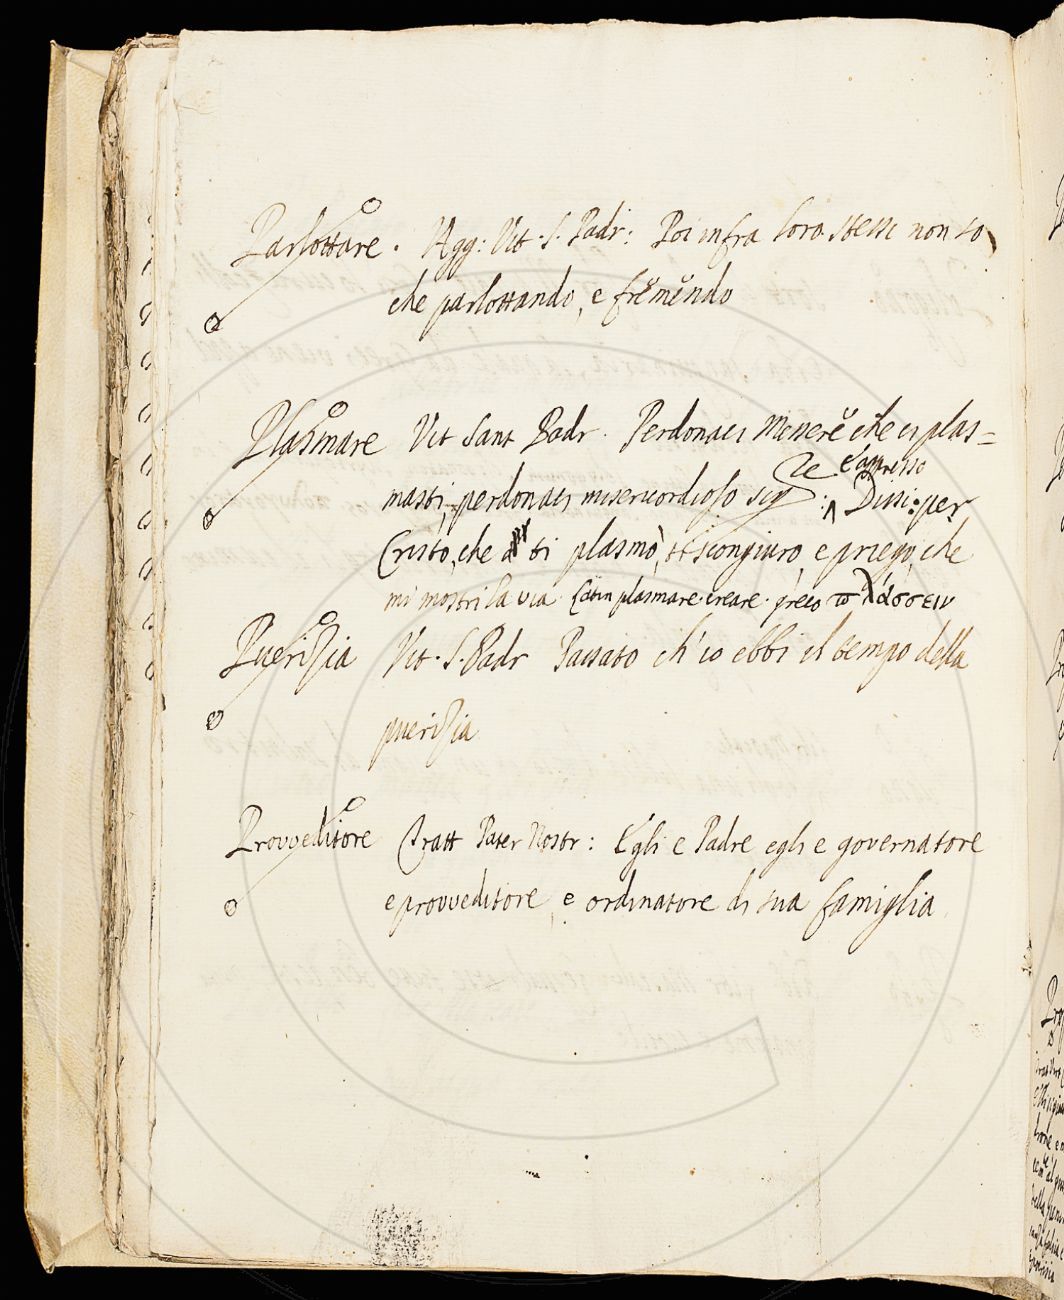 Parlottare. Agg: Vit. S. Padr: Poi infra loro stessi non so
che parlottando, e fremendo
Plasmare Vit Sant Padr. Perdonaci Messere che ci plas=
masti, perdonaci misericordioso
e appresso
Dissi: per
Cristo, che ti plasmò, ti scongiuro, e priego, che
mi mostri la via. Latin plasmare. creare. greco πλάσσειν
Puerizia Vit. S. Padr Passato ch'io ebbi il tempo della
puerizia
Provveditore Tratt Pater Nostr: Egli e Padre egli e governatore
e provveditore, e ordinatore di sua famiglia